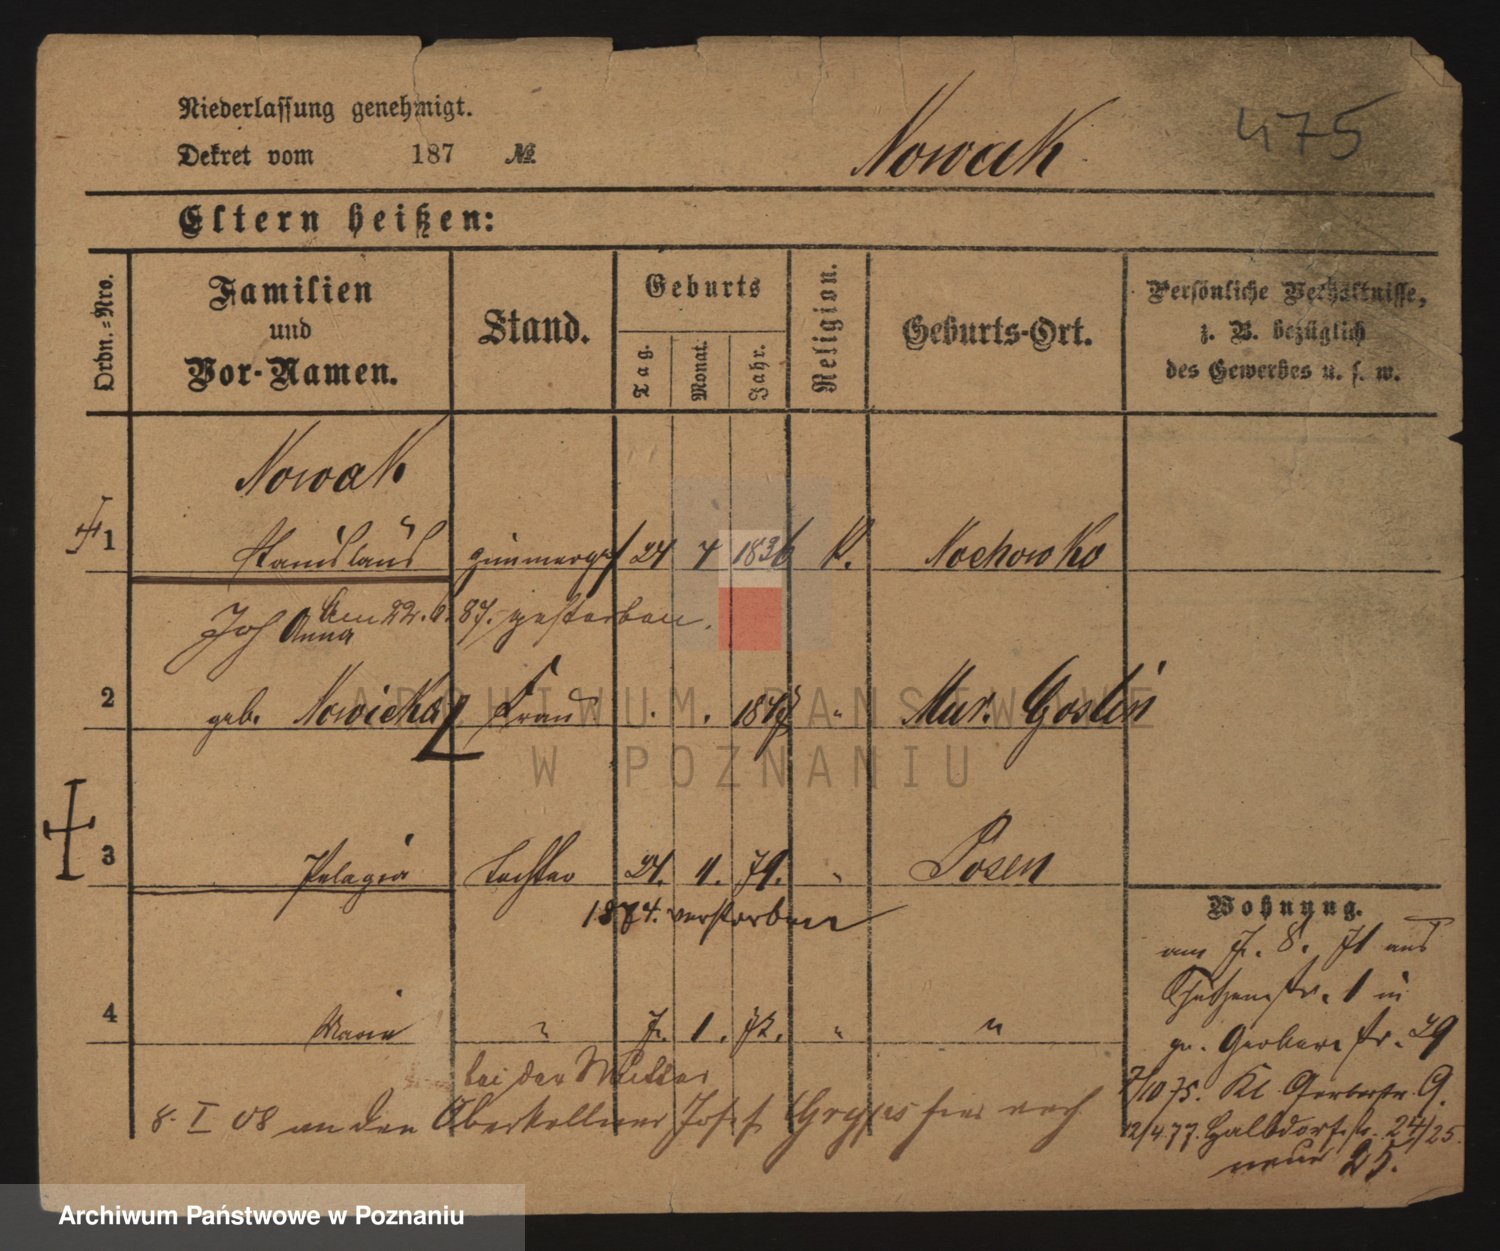 Niederlassung genehmigt.
Dekret vom 187 №
Nowak
475
Eltern heißen:
Ordn.=Nro.
Familien
und
Vor-Namen.
Stand.
Geburts
Tag.
Monat.
Jahr.
Religion.
Geburts-Ort.
Persönliche Verhältnisse,
z. B. bezüglich
des Gewerbes u. s. w.
Nowak
1 Stanislaus 24 4 1836 K. Nochowko
Am 22. 6. 87. gestorben.
Anna
2 geb. Nowicka Frau . . " Mur. Goslin
3 Pelagia Tochter 21. 4. " Posen
1874. verstorben
4 Maria " 7. 1. " "
bei der Mutter
8. I 08 an den Oberkellner Josef hier nach
Wohnung.
am 7. 8. 71 aus
Schützenstr. 1 in
gr. Gerberstr. 29
7/10 75. Kl Gerberstr 9.
12/4.77. Halbdorfstr. 24/25.
neue 25.
ARCHIWUM PAŃSTWOWE
W POZNANIU
Archiwum Państwowe w Poznaniu